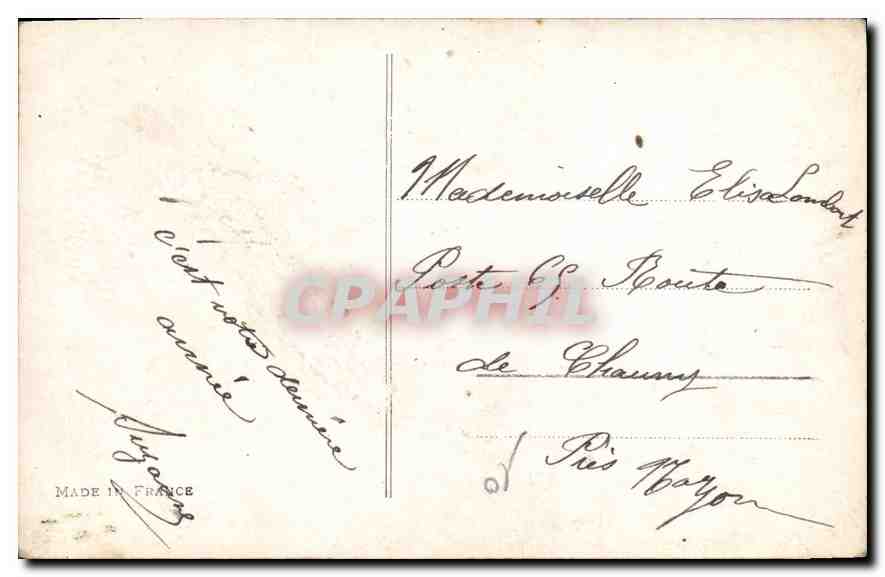 c'est votre dernière
année
Suzanne
MADE IN FRANCE
Mademoiselle Elisa Lombart
Poste 65 Route
de Chauny
Près Noyon
CPAPHIL